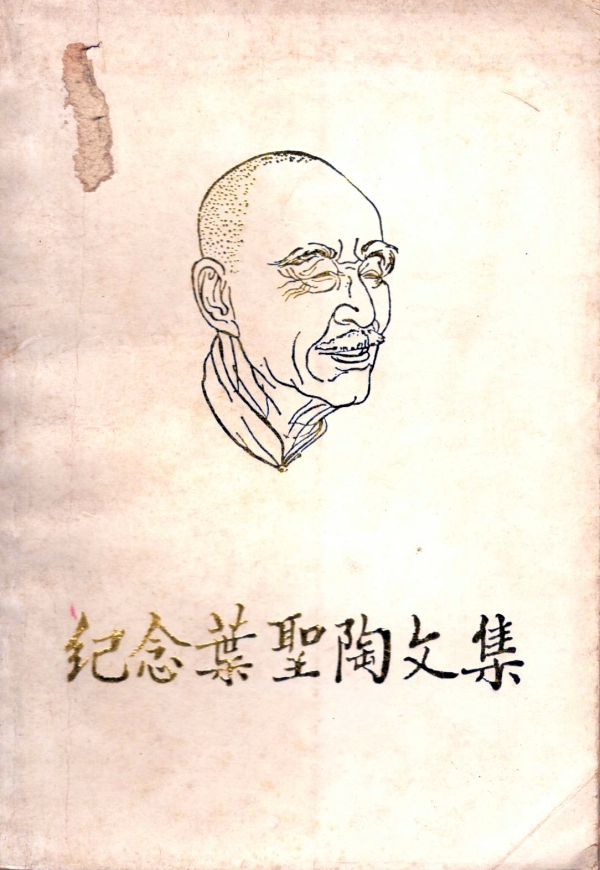 纪念葉聖陶文集